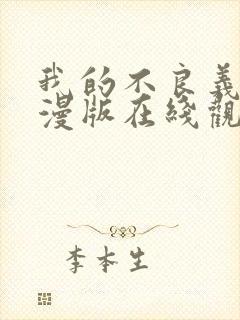 我的不良義
漫版在綫觀
李本生